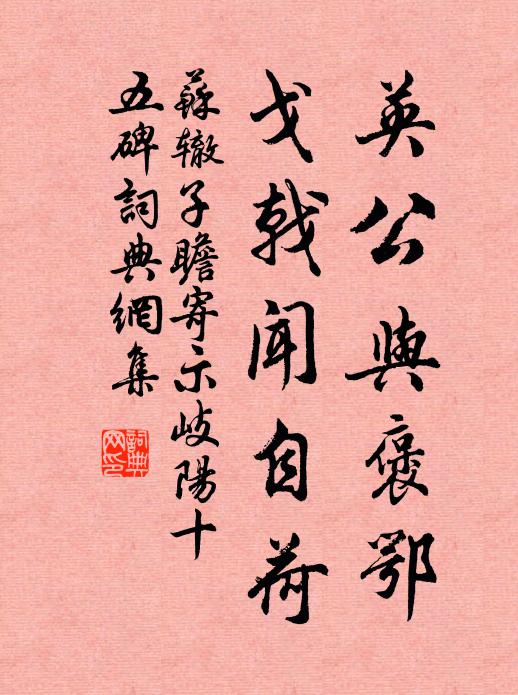 英公與褒鄂
戈戟聞自荷
蘇辙子瞻寄示岐陽十
五碑詞典網集
詞典網印